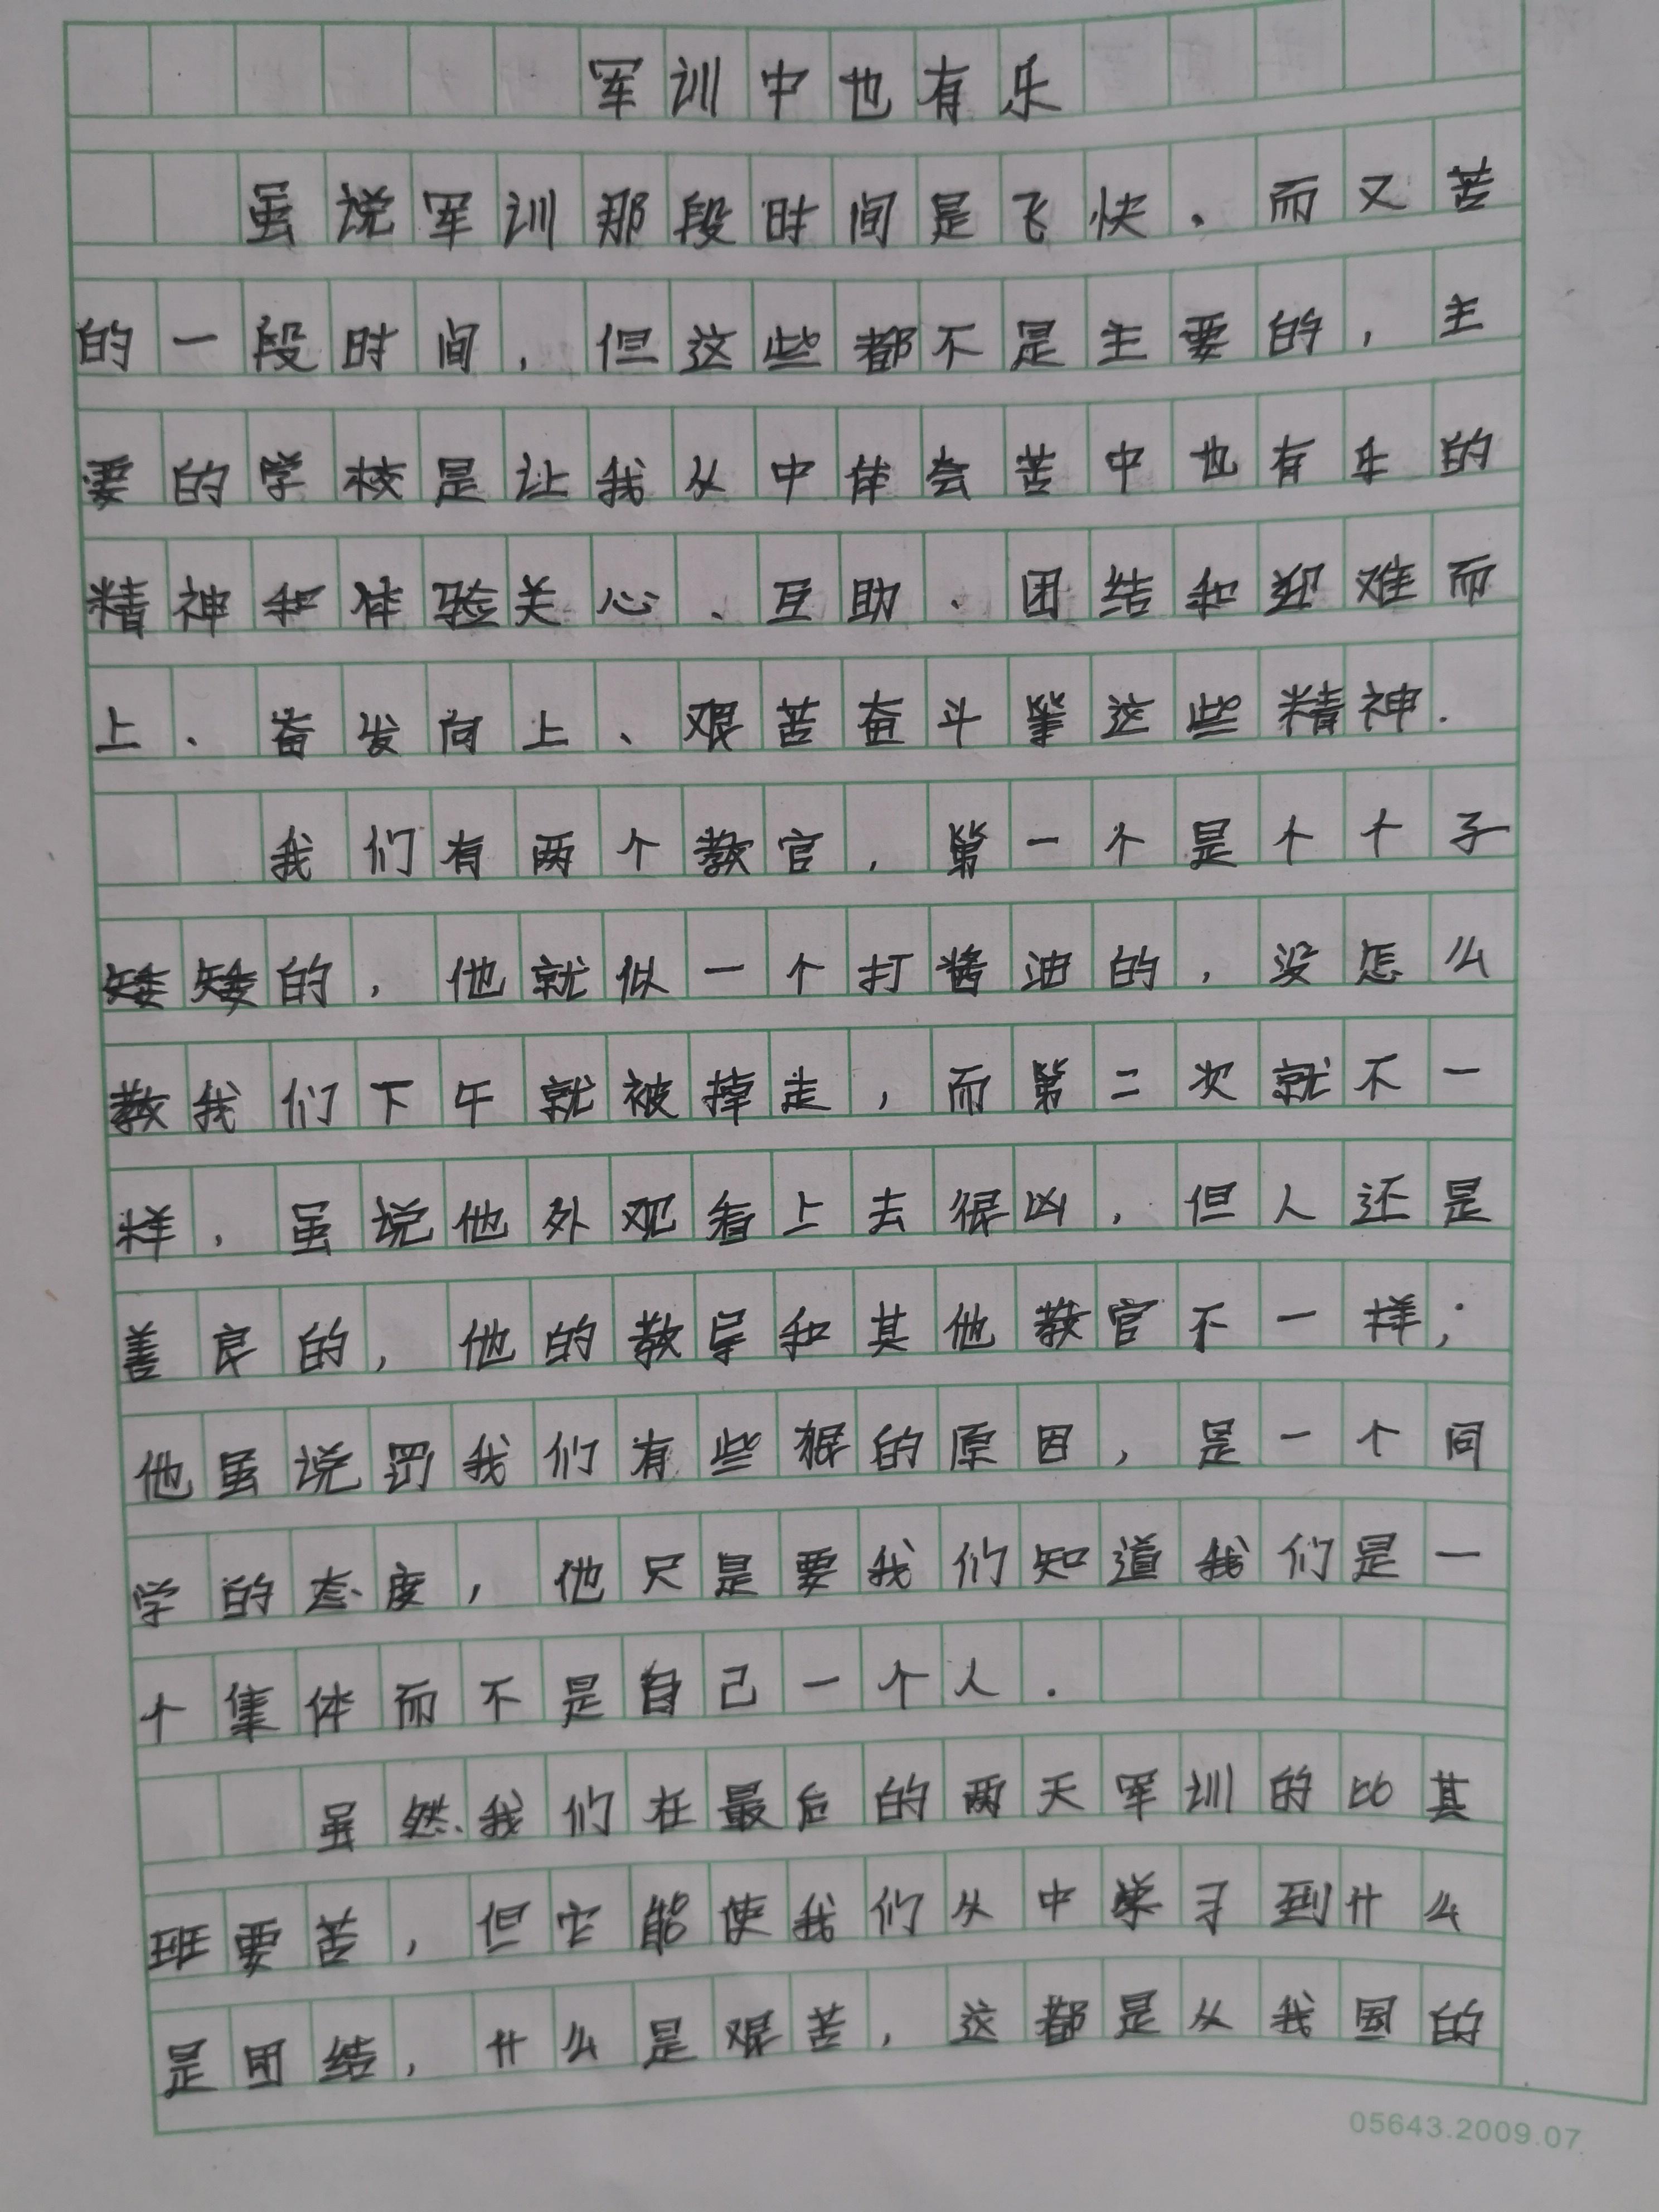 军训中也有乐
虽说军训那段时间是飞快、而又苦
的一段时间，但这些都不是主要的，主
要的学校是让我从中体会苦中也有乐的
精神和体验关心、互助、团结和迎难而
上、奋发向上、艰苦奋斗等这些精神.
我们有两个教官，第一个是个个子
矮矮的，他就似一个打酱油的，没怎么
教我们下午就被掉走，而第二次就不一
样，虽说他外观看上去很凶，但人还是
善良的，他的教导和其他教官不一样；
他虽说罚我们有些狠的原因，是一个同
学的态度，他只是要我们知道我们是一
个集体而不是自己一个人.
虽然我们在最后的两天军训的比其
班要苦，但它能使我们从中学习到什么
是团结，什么是艰苦，这都是从我国的
05643.2009.07